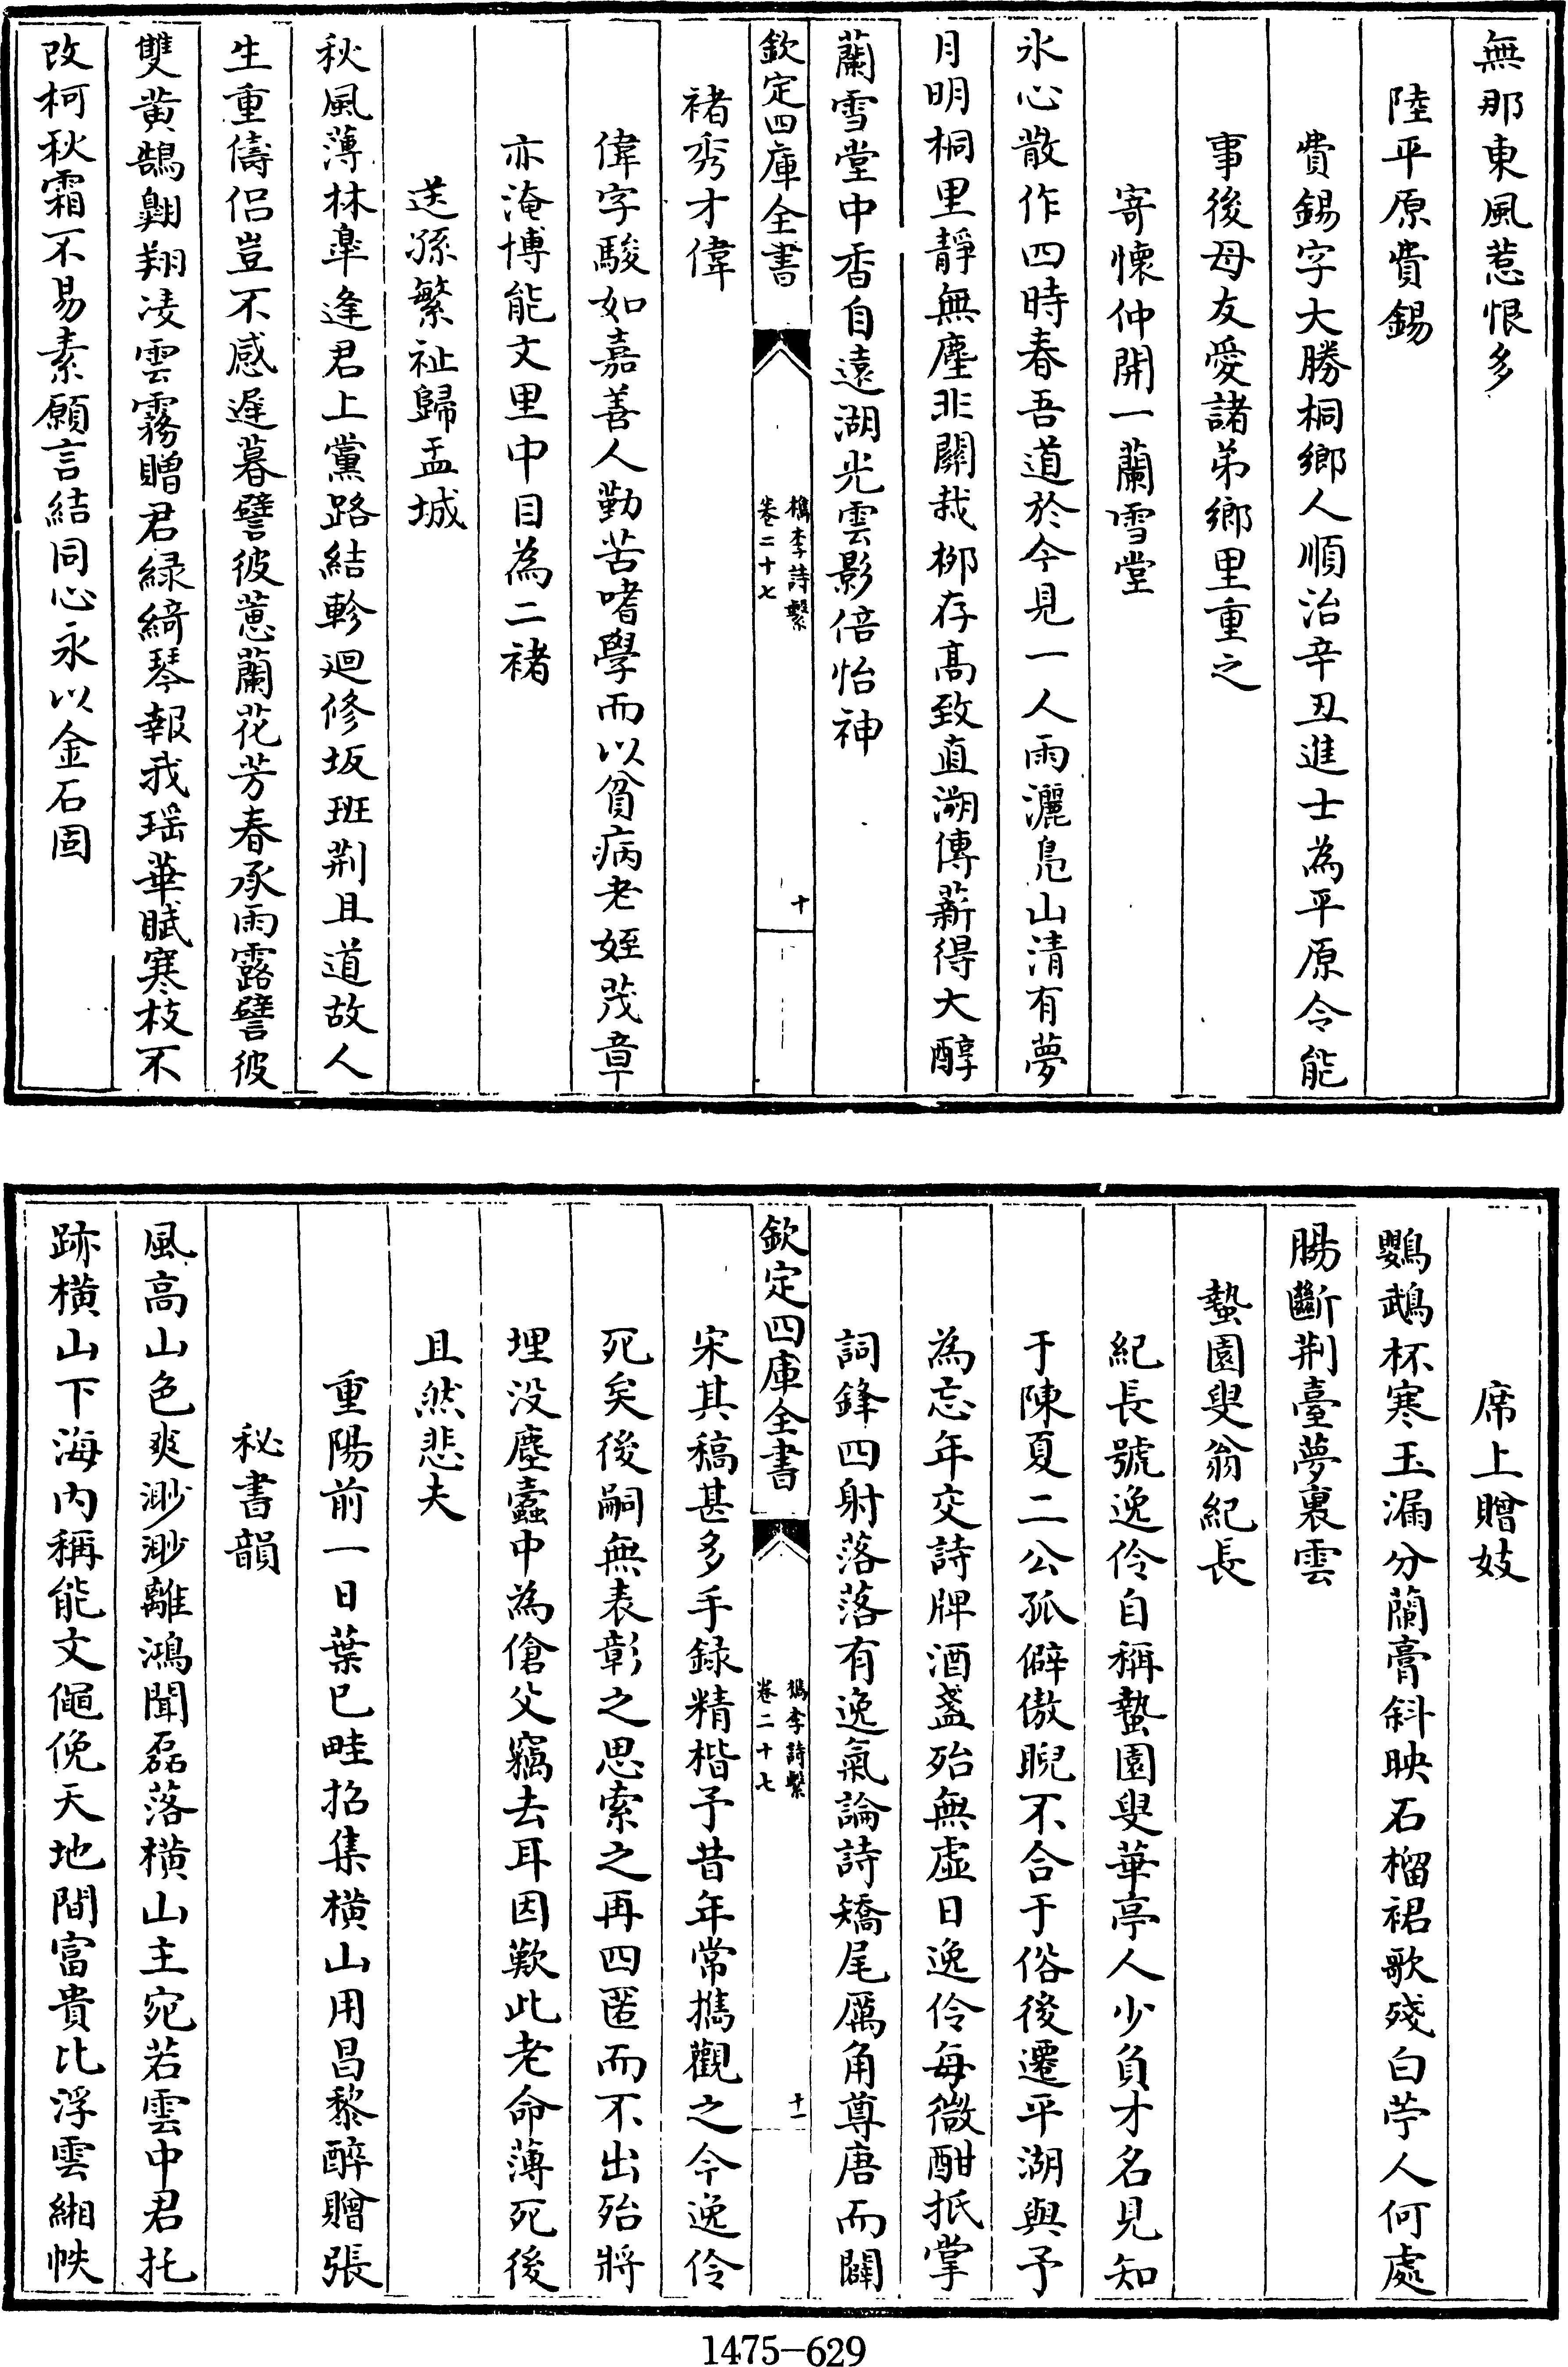 無那東風惹恨多
陸平原費錫
費錫字大勝桐鄉人順治辛丑進士為平原令能
事後母友愛諸弟鄉里重之
寄懷仲開一蘭雪堂
氷心散作四時春吾道於今見一人雨灑鳧山清有夢
月明桐里靜無塵非關栽柳存高致直溯傳薪得大醇
蘭雪堂中香自遠湖光雲影倍怡神
欽定四庫全書
檇李詩繫
卷二十七
十
褚秀才偉
偉字駿如嘉善人勤苦嗜學而以貧病老姪茂章
亦淹博能文里中目為二褚
送孫繁祉歸盂城
秋風薄林臯逢君上黨路結軫迴修坂班荆且道故人
生重儔侶豈不感遲暮譬彼蕙蘭花芳春承雨露譬彼
雙黄鵠翺翔凌雲霧贈君緑綺琴報我瑶華賦寒枝不
改柯秋霜不易素願言結同心永以金石固
席上贈妓
鸚鵡杯寒玉漏分蘭膏斜映石榴裙歌殘白苧人何處
腸斷荆臺夢裏雲
蟄園叟翁紀長
紀長號逸伶自稱蟄園叟華亭人少負才名見知
于陳夏二公孤僻傲睨不合于俗後遷平湖與予
為忘年交詩牌酒盞殆無虛日逸伶每微酣抵掌
詞鋒四射落落有逸氣論詩矯尾厲角尊唐而闢
欽定四庫全書
檇李詩繫
卷二十七
十一
宋其稿甚多手録精楷予昔年常攜觀之今逸伶
死矣後嗣無表彰之思索之再四匿而不出殆將
埋没塵蠹中為傖父竊去耳因歎此老命薄死後
且然悲夫
重陽前一日葉已畦招集横山用昌黎醉贈張
秘書韻
風高山色爽渺渺離鴻聞磊落横山主宛若雲中君托
跡横山下海内稱能文僶俛天地間富貴比浮雲緗帙
1475-629